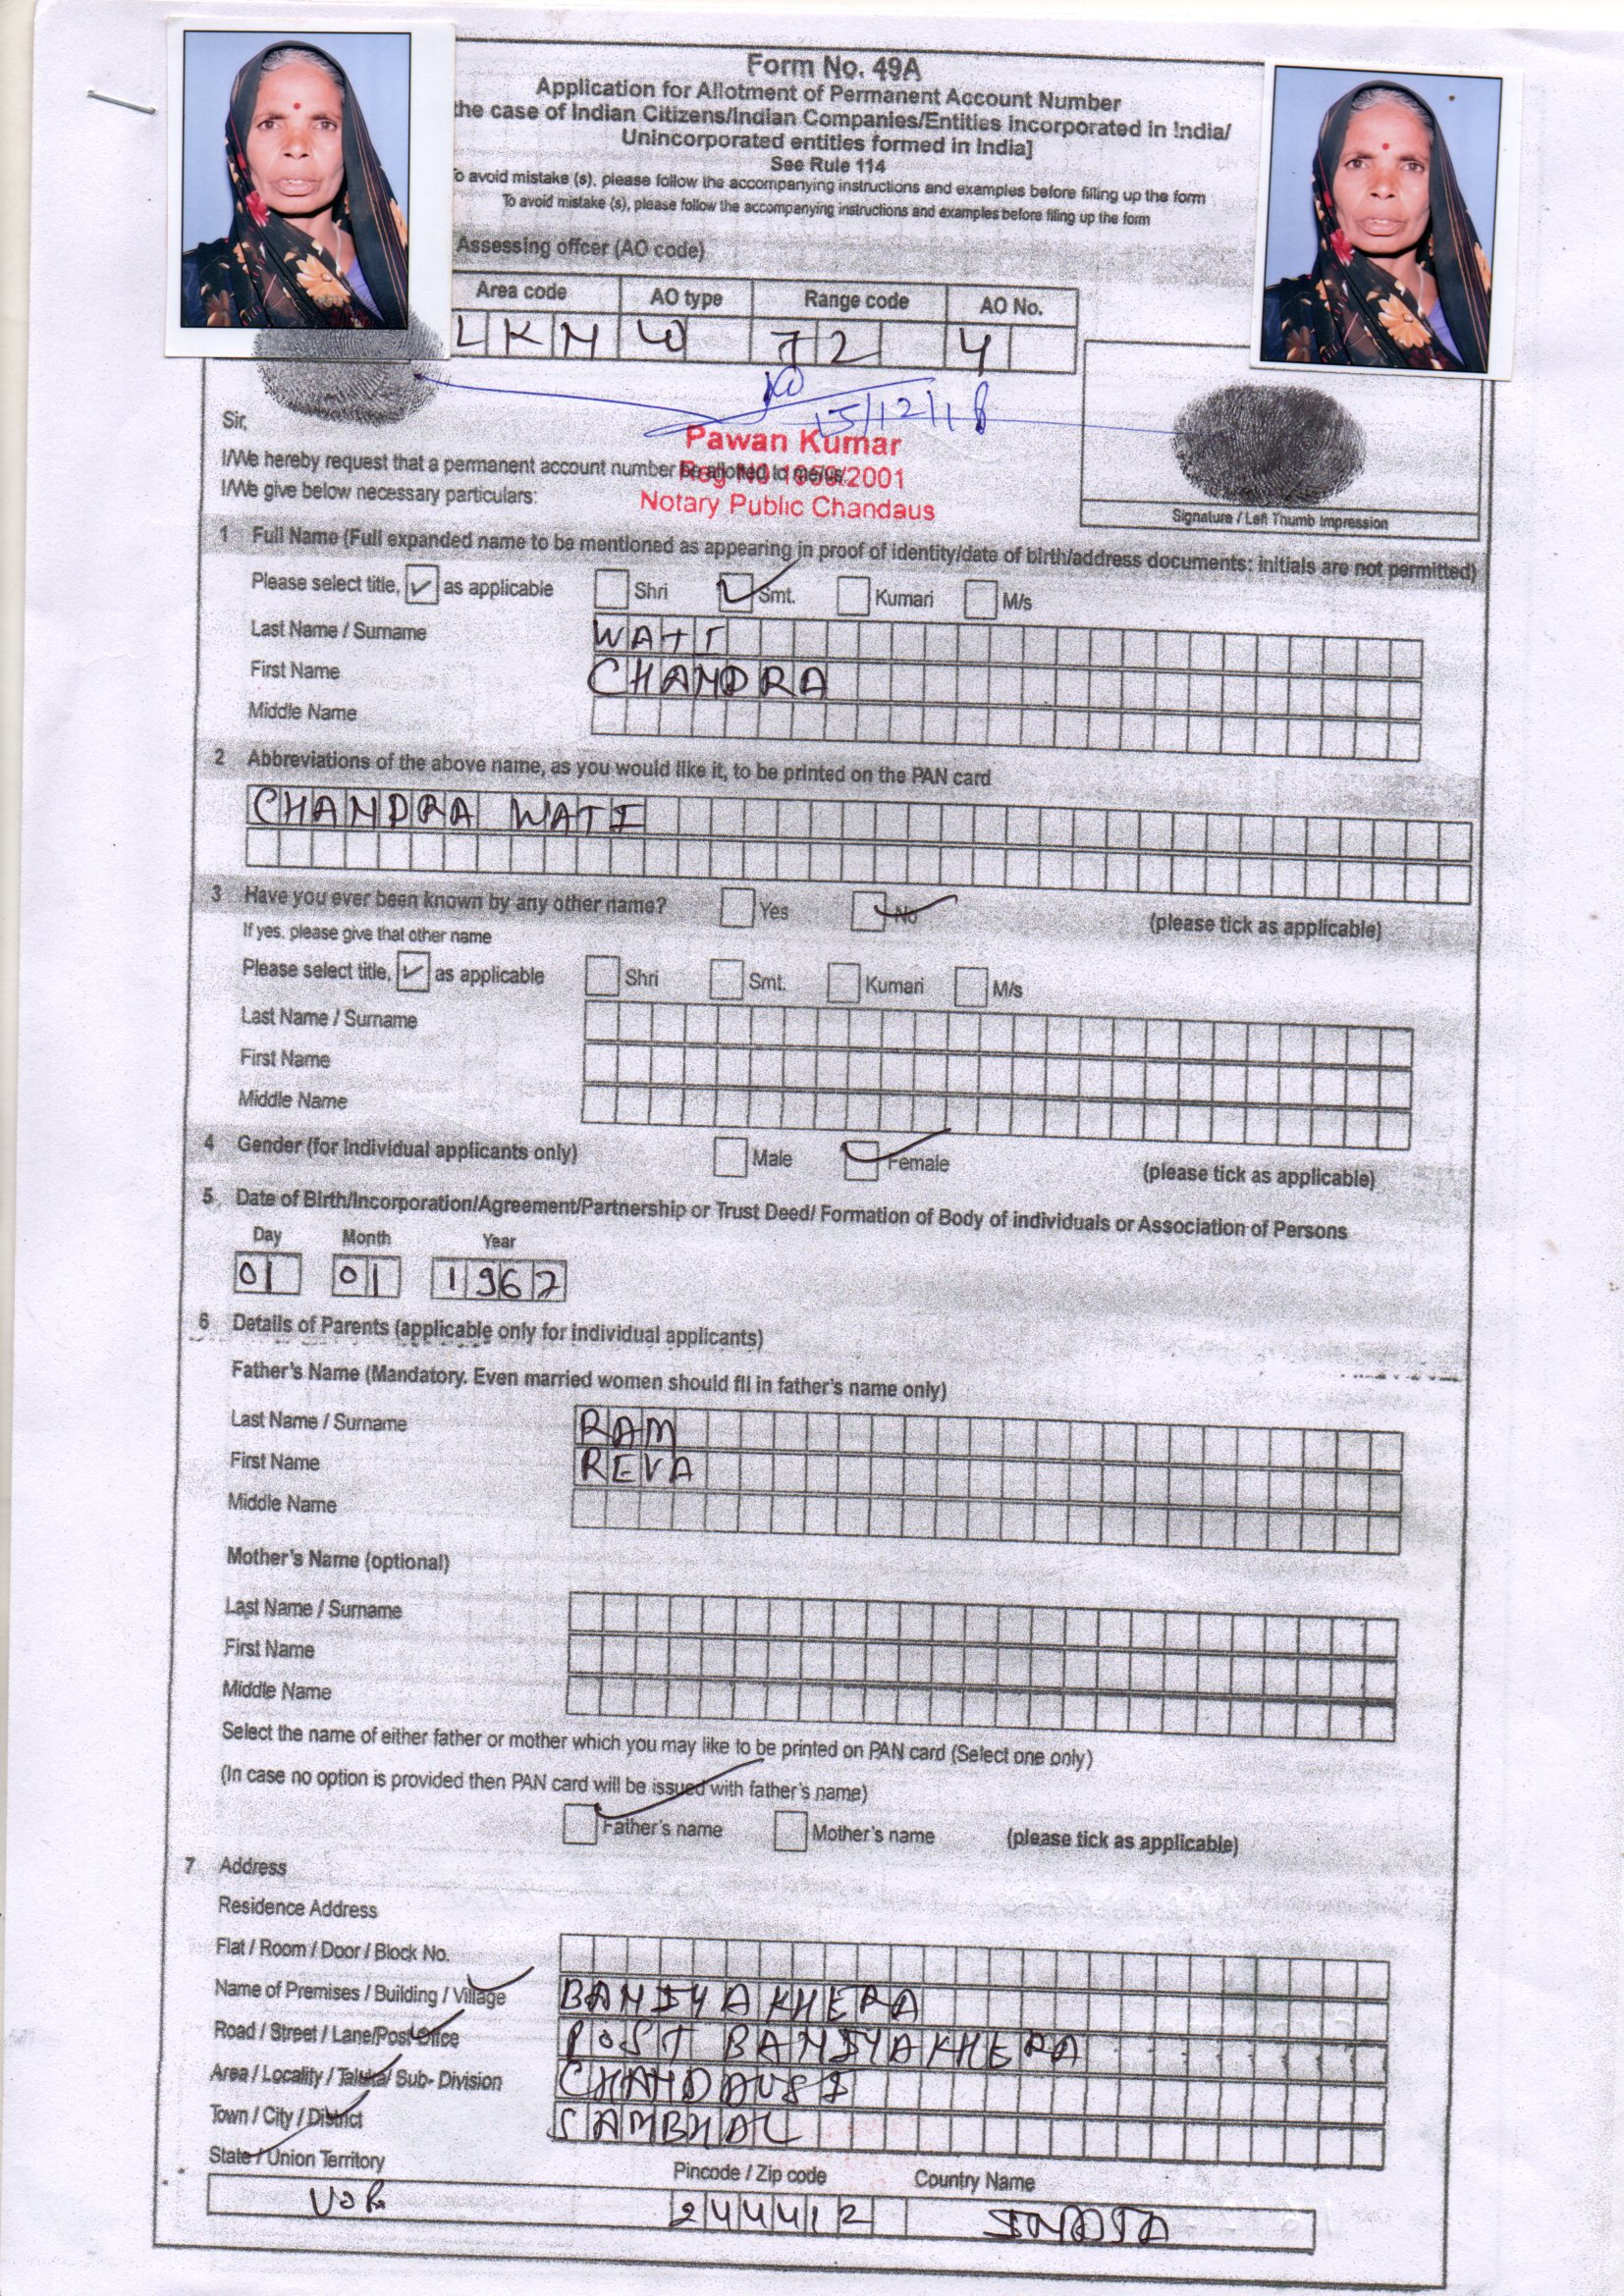 Form No. 49A
Application for Allotment of Permanent Account Number
the case of Indian Citizens/Indian Companies/Entities incorporated in India/
Unincorporated entities formed in India]
See Rule 114
To avoid mistake (s), please follow the accompanying instructions and examples before filling up the form
To avoid mistake (s), please follow the accompanying instructions and examples before filing up the form
Assessing offcer (AO code)
Area code AO type Range code AO No.
LKN W 72 4
15/12/18
Sir,
Pawan Kumar
I/We hereby request that a permanent account number be allotted to me/us.
Reg No 1959/2001
I/We give below necessary particulars:
Notary Public Chandaus
Signature / Left Thumb Impression
1 Full Name (Full expanded name to be mentioned as appearing in proof of identity/date of birth/address documents: initials are not permitted)
Please select title, ✓ as applicable Shri ✓ Smt. Kumari M/s
Last Name / Surname WATI
First Name CHANDRA
Middle Name
2 Abbreviations of the above name, as you would like it, to be printed on the PAN card
CHANDRA WATI
3 Have you ever been known by any other name? Yes ✓ No (please tick as applicable)
If yes. please give that other name
Please select title, ✓ as applicable Shri Smt. Kumari M/s
Last Name / Surname
First Name
Middle Name
4 Gender (for individual applicants only) Male ✓ Female (please tick as applicable)
5 Date of Birth/Incorporation/Agreement/Partnership or Trust Deed/ Formation of Body of individuals or Association of Persons
Day Month Year
01 01 1967
6 Details of Parents (applicable only for individual applicants)
Father's Name (Mandatory. Even married women should fill in father's name only)
Last Name / Surname RAM
First Name REVA
Middle Name
Mother's Name (optional)
Last Name / Surname
First Name
Middle Name
Select the name of either father or mother which you may like to be printed on PAN card (Select one only)
(In case no option is provided then PAN card will be issued with father's name)
✓ Father's name Mother's name (please tick as applicable)
7 Address
Residence Address
Flat / Room / Door / Block No.
Name of Premises / Building / Village BANIYAKHERA
Road / Street / Lane/Post Office POST BANIYAKHERA
Area / Locality / Taluka/ Sub- Division CHANDAUSI
Town / City / District SAMBHAL
State / Union Territory Pincode / Zip code Country Name
U.P. 244412 INDIA